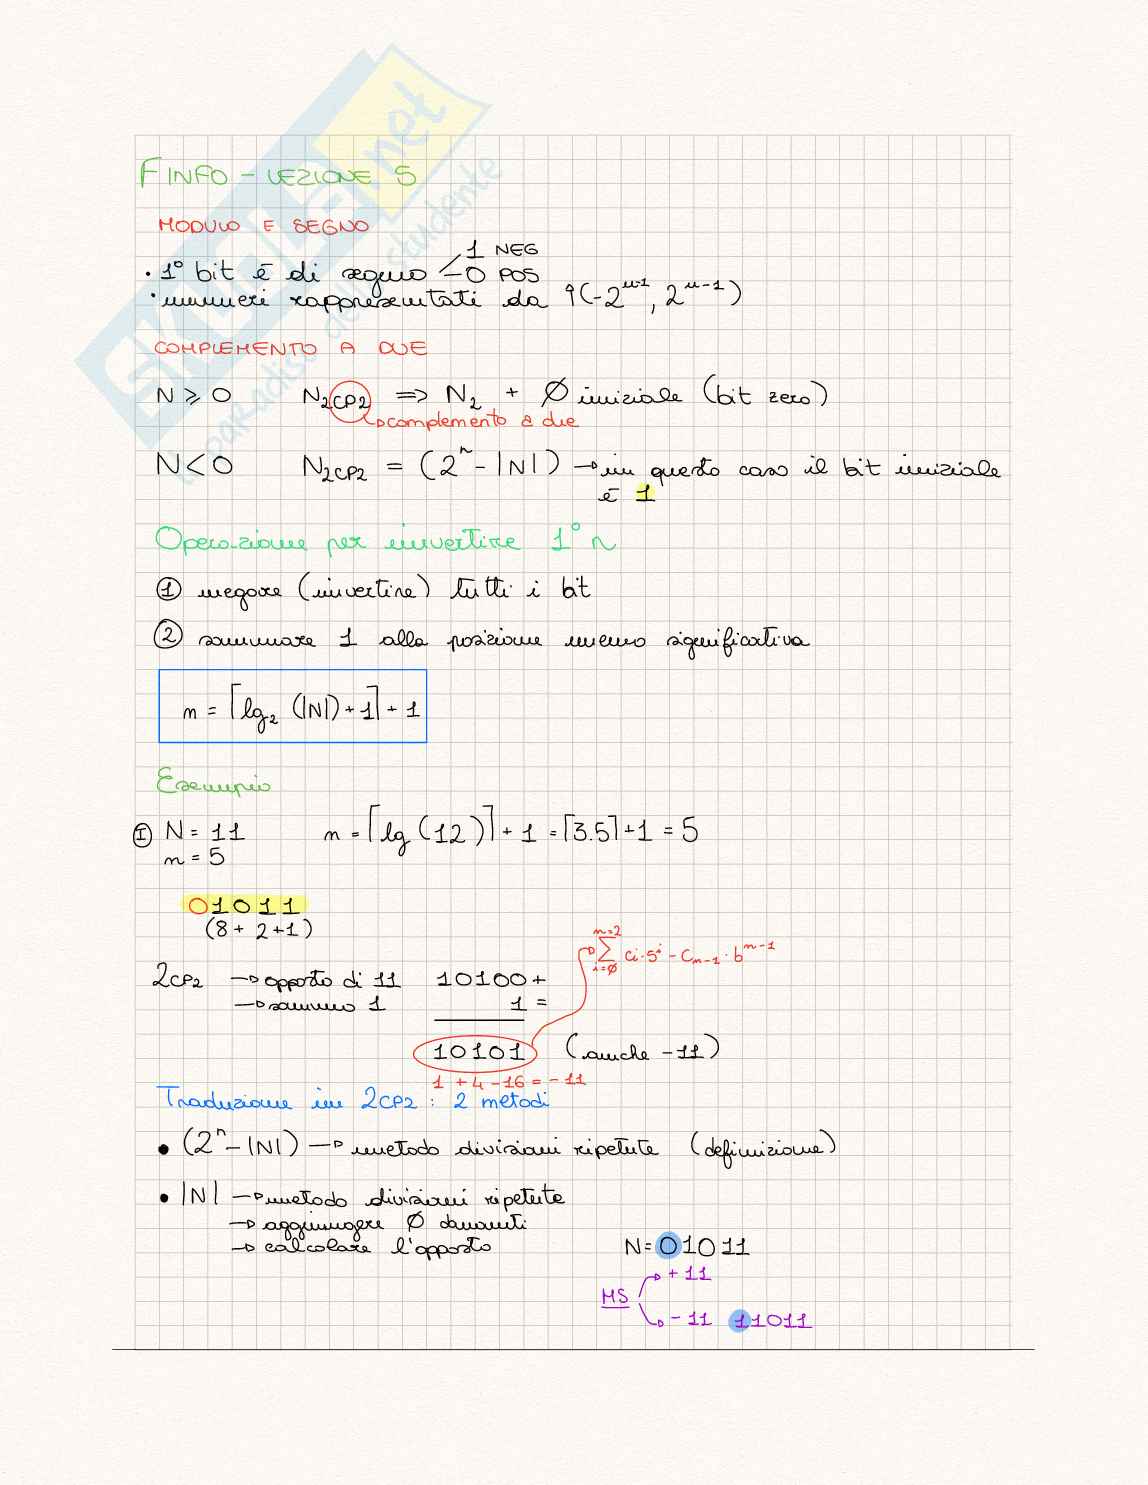 FINFO - LEZIONE 5
MODULO E SEGNO
1 NEG
• 1° bit è di segno - 0 POS
• numeri rappresentati da (-2^n-1, 2^n-1)
COMPLEMENTO A DUE
N ≥ 0 N2CP2 => N2 + Ø iniziale (bit zero)
→ complemento a due
N < 0 N2CP2 = (2^n - |N|) → in questo caso il bit iniziale
è 1
Operazione per invertire 1° n
① negare (invertire) tutti i bit
② sommare 1 alla posizione meno significativa
n = ⌈lg2 (|N|) + 1⌉ + 1
Esempio
Ⓘ N = 11 n = ⌈lg (12)⌉ + 1 = ⌈3.5⌉ + 1 = 5
n = 5
01011
(8 + 2 + 1)
n=2
∑ ci · 5^i - Cn-1 · b^n-1
i=Ø
2CP2 → opposto di 11 10100 +
→ sommo 1 1 =
10101 (anche -11)
1 + 4 - 16 = - 11
Traduzione in 2CP2 : 2 metodi
• (2^n - |N|) → metodo divisioni ripetute (definizione)
• |N| → metodo divisioni ripetute
→ aggiungere Ø davanti
→ calcolare l'opposto N = 01011
+ 11
MS
- 11 11011
skuola.net
il paradiso dello studente